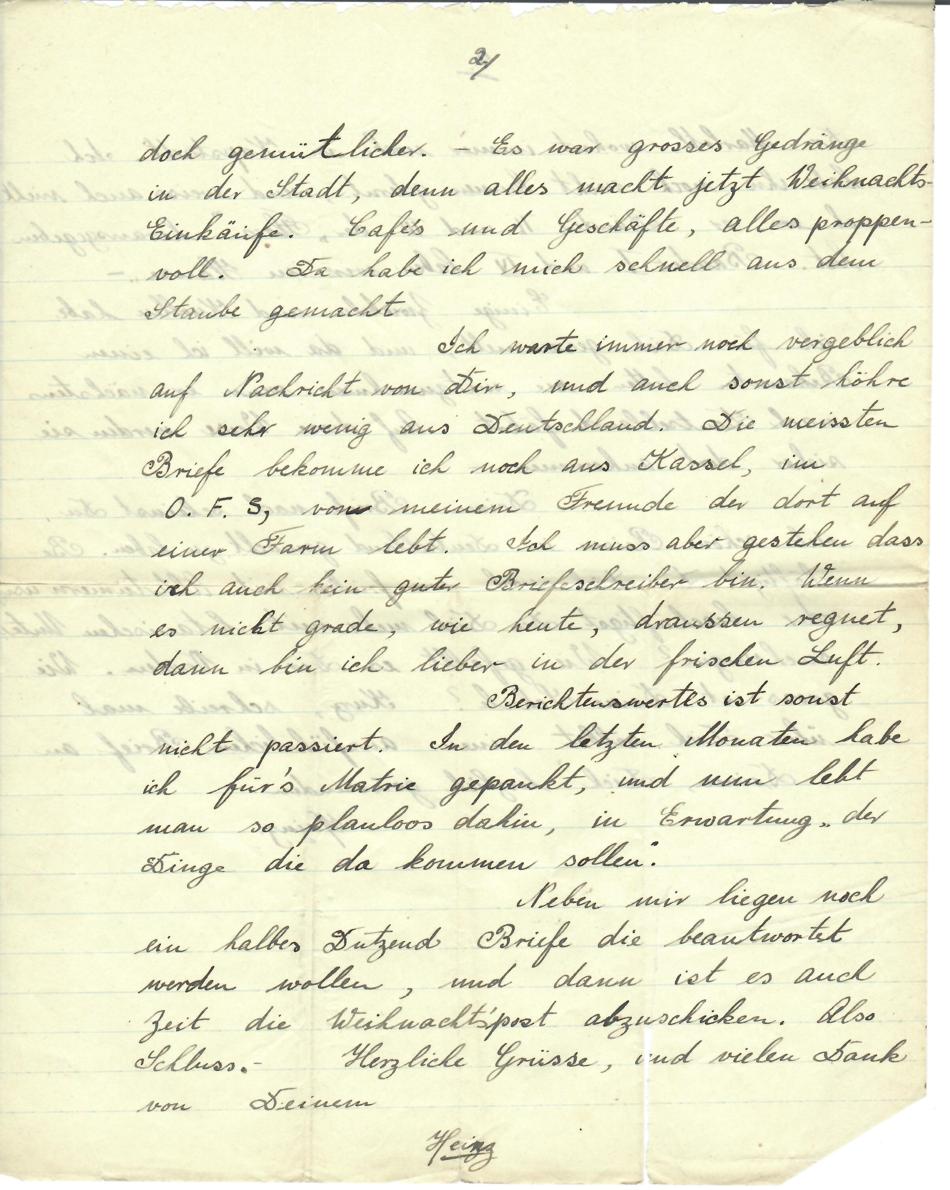 2/
doch gemütlicher. – Es war grosses Gedränge
in der Stadt, denn alles macht jetzt Weihnachts-
Einkäufe. Café's und Geschäfte, alles proppen-
voll. Da habe ich mich schnell aus dem
Staube gemacht
Ich warte immer noch vergeblich
auf Nachricht von Dir, und auch sonst höhre
ich sehr wenig aus Deutschland. Die meissten
Briefe bekomme ich noch aus Kassel, im
O. F. S, von meinem Freunde der dort auf
einer Farm lebt. Ich muss aber gestehen dass
ich auch kein guter Briefschreiber bin. Wenn
es nicht grade, wie heute, draussen regnet,
dann bin ich lieber in der frischen Luft.
Berichtenswertes ist sonst
nicht passiert. In den letzten Monaten habe
ich für's Matric gepaukt, und nun lebt
man so planloos dahin, in Erwartung „der
Dinge die da kommen sollen".
Neben mir liegen noch
ein halbes Dutzend Briefe die beantwortet
werden wollen, und dann ist es auch
Zeit die Weihnacht'spost abzuschicken. Also
Schluss.- Herzliche Grüsse, und vielen Dank
von Deinem
Heinz